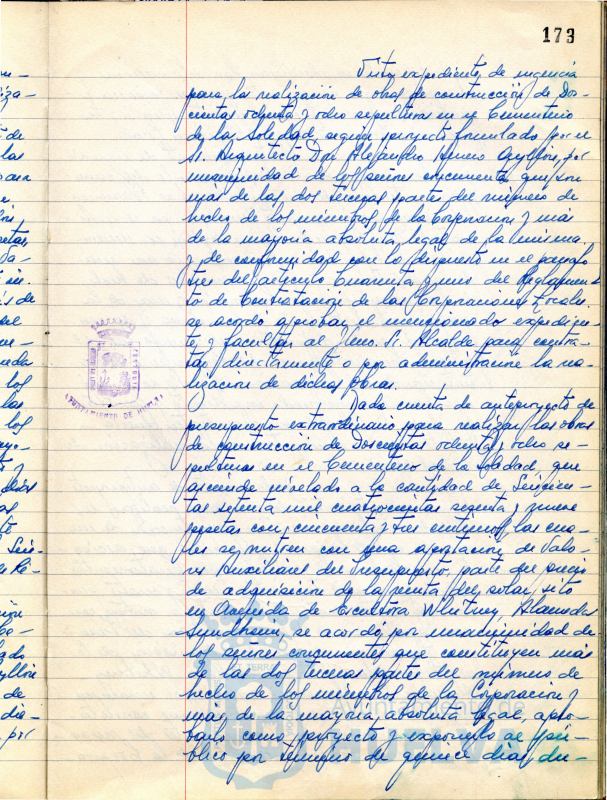 173
Visto expediente de urgencia
para la realización de obras de construcción de Dos-
cientas ochenta y ocho sepulturas en el Cementerio
de la Soledad, según proyecto formulado por el
Sr. Arquitecto Don Alejandro Herrero Ayllón, por
unanimidad de los señores concurrentes que son
más de las dos terceras partes del número de
hecho de los miembros de la Corporación y más
de la mayoría absoluta legal de la misma.
y de conformidad con lo dispuesto en el párrafo
tres del artículo cuarenta y uno del Reglamen-
to de Contratación de las Corporaciones Locales.
se acordó aprobar el mencionado expedien-
te y facultar al Ilmo. Sr. Alcalde para contra-
tar directamente o por administración la rea-
lización de dichas obras.
Dada cuenta de anteproyecto de
presupuesto extraordinario para realizar las obras
de construcción de Doscientas ochenta y ocho se-
pulturas en el Cementerio de la Soledad, que
asciende nivelado a la cantidad de Seiscien-
tas setenta mil cuatrocientas sesenta y nueve
pesetas con cincuenta y tres céntimos, las cua-
les se nutren con una aportación de Valo-
res Auxiliares del Presupuesto, parte del precio
de adquisición de la venta del solar, sito
en Avenida de Escultora Whitney, Alameda
Sundheim, se acordó por unanimidad de
los señores concurrentes que constituyen más
de las dos terceras partes del número de
hecho de los miembros de la Corporación y
más de la mayoría absoluta legal, apro-
barlo como proyecto y exponerlo al pú-
blico por término de quince días du-
AYUNTAMIENTO DE HUELVA
Ayuntamiento de
HUELVA